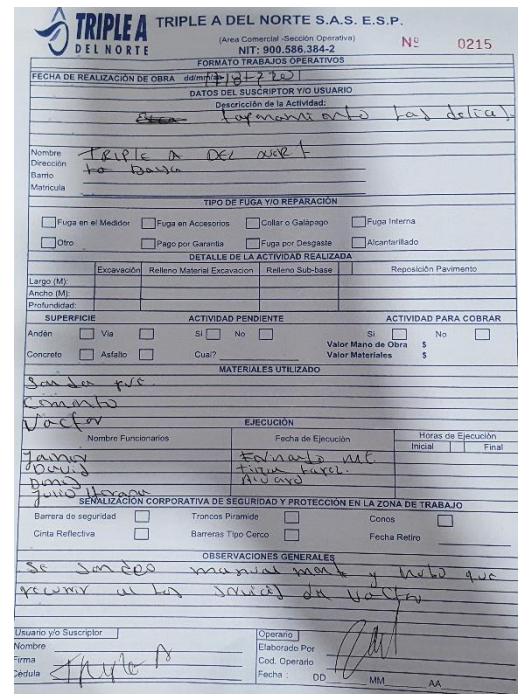 TRIPLE A
DEL NORTE
TRIPLE A DEL NORTE S.A.S. E.S.P.
(Area Comercial -Sección Operativa)
NIT: 900.586.384-2
Nº 0215
FORMATO TRABAJOS OPERATIVOS
FECHA DE REALIZACIÓN DE OBRA dd/mm/aa
DATOS DEL SUSCRIPTOR Y/O USUARIO
Descricción de la Actividad:
taponamiento las delicias
Nombre TRIPLE A DEL NORT
Dirección
Barrio
Matricula
TIPO DE FUGA Y/O REPARACIÓN
Fuga en el Medidor Fuga en Accesorios Collar o Galápago Fuga Interna
Otro Pago por Garantia Fuga por Desgaste Alcantarillado
DETALLE DE LA ACTIVIDAD REALIZADA
Excavación Relleno Material Excavacion Relleno Sub-base Reposición Pavimento
Largo (M):
Ancho (M):
Profundidad:
SUPERFICIE ACTIVIDAD PENDIENTE ACTIVIDAD PARA COBRAR
Andén Via Si No Si No
Valor Mano de Obra $
Concreto Asfalto Cual? Valor Materiales $
MATERIALES UTILIZADO
Sonda pvc
Cemento
Vactor
EJECUCIÓN
Nombre Funcionarios Fecha de Ejecución Horas de Ejecución
Inicial Final
Jainer
David
Julio
Alvaro
SEÑALIZACIÓN CORPORATIVA DE SEGURIDAD Y PROTECCIÓN EN LA ZONA DE TRABAJO
Barrera de seguridad Troncos Piramide Conos
Cinta Reflectiva Barreras Tipo Cerco Fecha Retiro
OBSERVACIONES GENERALES
se sondeo manual mente y hubo que
recurrir al los servicios de Vactor
Usuario y/o Suscriptor Operario
Nombre Elaborado Por
Firma Triple A Cod. Operario
Cédula Fecha : DD MM AA